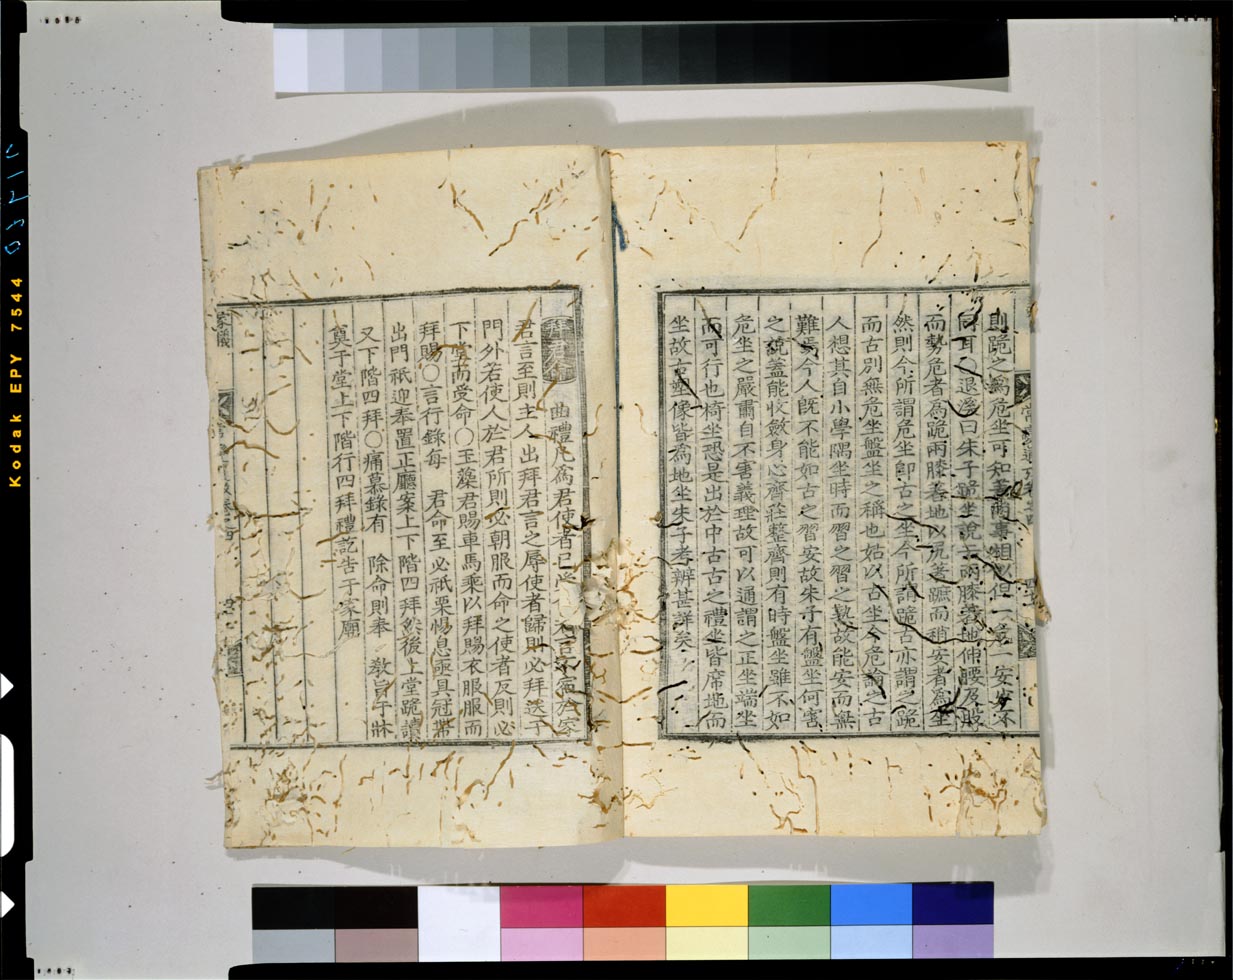 則跪之爲危坐可知
同耳○退溪曰朱子跪坐說云兩膝著地伸腰及股
而勢危者爲跪兩膝著地以尻著蹠而稍安者爲坐
然則今所謂危坐卽古之坐今所謂跪古亦謂之跪
而古別無危坐盤坐之稱也姑以古坐今危論之古
人想其自小學隅坐時而習之習之熟故能安而無
難焉今人旣不能如古之習安故朱子有盤坐何害
之說蓋能收斂身心齊莊整齊則有時盤坐雖不如
危坐之嚴肅自不害義理故可以通謂之正坐端坐
而可行也椅坐恐是出於中古古之禮坐皆席地而
坐故古塑像皆爲地坐朱子考辨甚詳矣
拜君言 曲禮凡爲君使者已受
君言至則主人出拜君言之辱使者歸則必拜送于
門外若使人於君所則必朝服而命之使者反則必
下堂而受命○玉藻君賜車馬乘以拜賜衣服服而
拜賜○言行錄每 君命至必祇栗惕息亟具冠帶
出門祇迎奉置正廳案上下階四拜然後上堂跪讀
又下階四拜○痛慕錄有 除命則奉 敎旨
奠于堂上下階行四拜禮訖告于家廟
Kodak EPY 7544